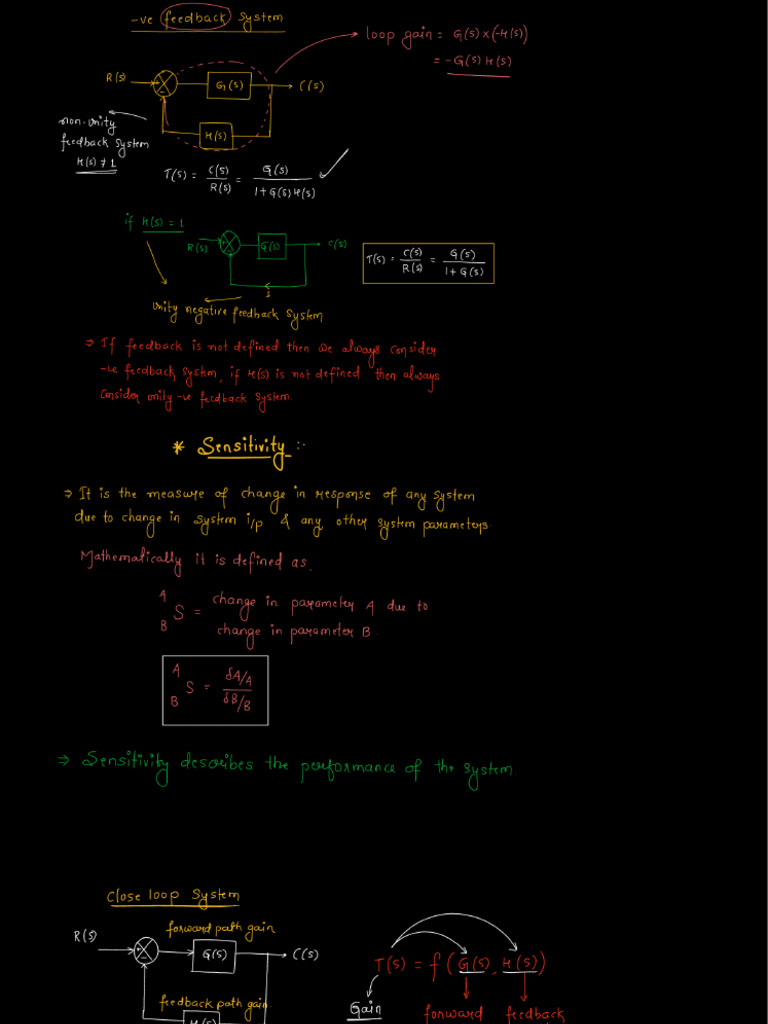 -ve feedback System
loop gain = G(s) x (-H(s))
= - G(s) H(s)
R(s)
G(s)
C(s)
H(s)
non-unity
feedback system
H(s) ≠ 1
T(s) = C(s)/R(s) = G(s)/1+G(s)H(s)
if H(s) = 1
R(s)
G(s)
C(s)
T(s) = C(s)/R(s) = G(s)/1+G(s)
unity negative feedback system
⇒ If feedback is not defined then we always consider
-ve feedback system, if H(s) is not defined then always
consider unity -ve feedback system.
* Sensitivity :-
⇒ It is the measure of change in response of any system
due to change in system i/p & any other system parameters.
Mathematically it is defined as.
A
S = change in parameter A due to
B
change in parameter B.
A
S = δA/A
B
δB/B
⇒ Sensitivity describes the performance of the system
Close loop System
forward path gain
R(s)
G(s)
C(s)
T(s) = f(G(s), H(s))
feedback path gain
Gain
forward
feedback
H(s)